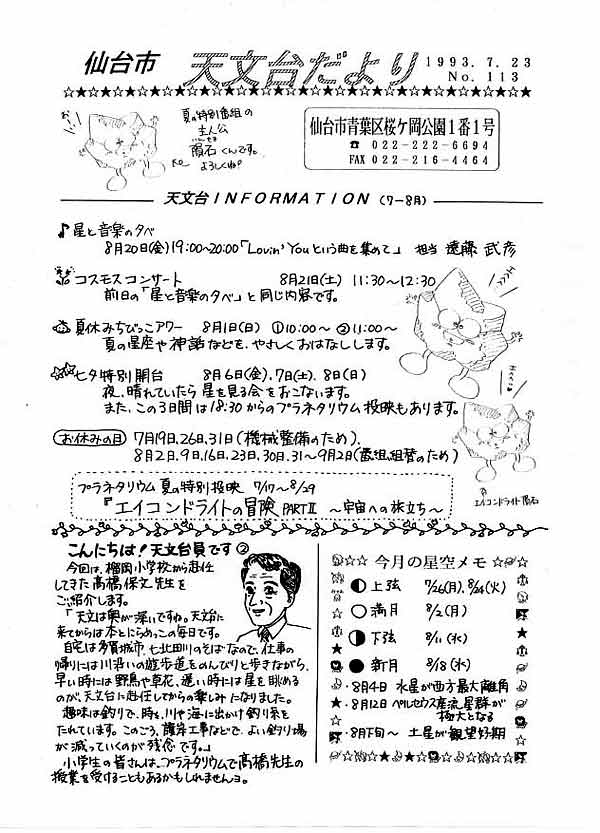 仙台市 天文台だより
1993.7.23
No. 113
夏の特別番組の
主人公
隕石くんです。
よろしくね!
仙台市青葉区桜ケ岡公園1番1号
☎ 022-222-6694
FAX 022-216-4464
天文台 INFORMATION (7-8月)
♪星と音楽の夕べ
8月20日(金)19:00~20:00「Lovin' Youという曲を集めて」 担当 遠藤 武彦
コスモスコンサート 8月21日(土) 11:30~12:30
前日の「星と音楽の夕べ」と同じ内容です。
夏休みちびっこアワー 8月1日(日) ①10:00~ ②11:00~
夏の星座や神話などを、やさしくおはなしします。
七夕特別開台 8月6日(金),7日(土),8日(日)
夜、晴れていたら星を見る会をおこないます。
また、この3日間は18:30からのプラネタリウム投映もあります。
お休みの日 7月19日,26日,31日(機械整備のため),
8月2日,9日,16日,23日,30日,31~9月2日(番組組替のため)
エイコンドライト隕石
プラネタリウム 夏の特別投映 7/17~8/29
『エイコンドライトの冒険 PARTⅡ ~宇宙への旅立ち~
こんにちは!天文台員です②
今回は、榴岡小学校から赴任
してきた高橋保文先生を
ご紹介します。
「天文は奥が深いですね。天文台に
来てからは本とにらめっこの毎日です。
自宅は多賀城市、七北田川のそばなので、仕事の
帰りには川沿いの遊歩道をのんびりと歩きながら、
早い時には野鳥や草花、遅い時には星を眺める
のが、天文台に赴任してからの楽しみになりました。
趣味は釣りで、時々、川や海に出かけ釣り糸を
たれています。このごろ、護岸工事などで、よい釣り場
が減っていくのが残念です。」
小学生の皆さんは、プラネタリウムで高橋先生の
授業を受けることもあるかもしれませんヨ。
今月の星空メモ
上弦 7/26(月), 8/24(火)
満月 8/2(月)
下弦 8/11(水)
新月 8/18(水)
・8月4日 水星が西方最大離角
・8月12日 ペルセウス座流星群が
極大となる
・8月下旬~ 土星が観望好期